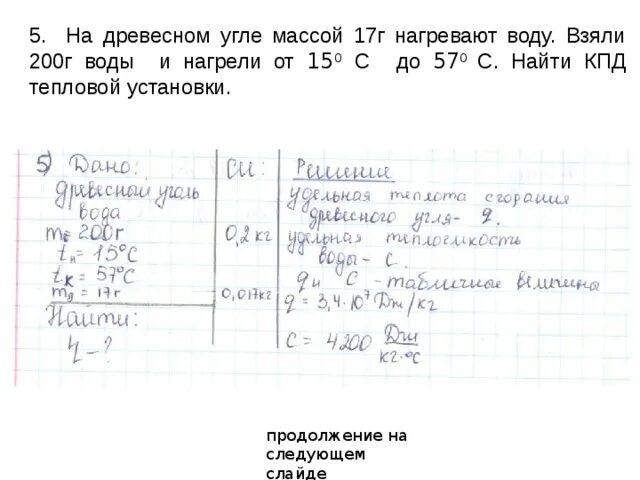 5. На древесном угле массой 17г нагревают воду. Взяли
200г воды и нагрели от 15⁰ С до 57⁰ С. Найти КПД
тепловой установки.
5) Дано:
древесный уголь
вода
m = 200г
tн = 15°C
tк = 57°C
mд = 17г
Найти:
η - ?
СИ:
0,2 кг
0,017кг
Решение
удельная теплота сгорания
древесного угля - q.
удельная теплоемкость
воды - c.
q и c - табличные величины
q = 3,4·10⁷ Дж/кг
c = 4200 Дж/кг·°C
продолжение на
следующем
слайде